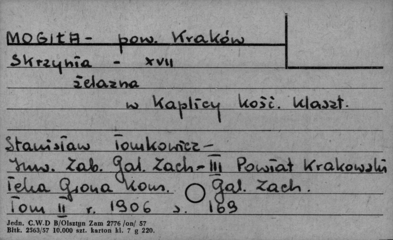 MOGIŁA - pow. Kraków
Skrzynia - XVII
żelazna
w Kaplicy Kość. Klaszt.
Stanisław Tomkowicz -
Inw. Zab. Gal. Zach - III Powiat Krakowski
Teka Grona Kons. Gal. Zach.
Tom II r. 1906 s. 169
Jedn. C.W.D B/Olsztyn Zam 2776 /on/ 57
Bltk. 2563/57 10.000 szt. karton kl. 7 g 220.